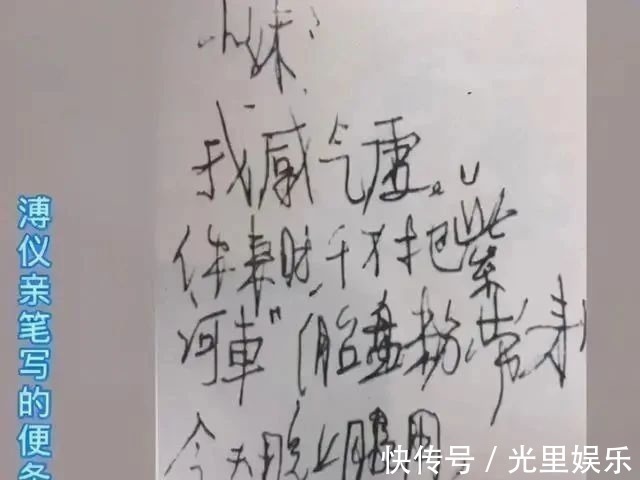 小妹：
我感气虚。
你来时，千万把“紫
河車”（胎盘粉带来，
今天晚上服用
溥仪亲笔写的便条
快传号／光里娱乐